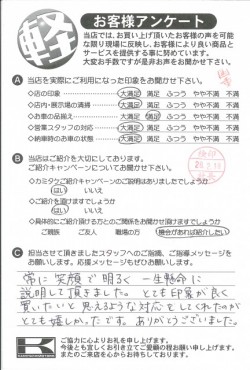 軽
お客様アンケート
当店では、お買い上げ頂いたお客様の声を可能
な限り現場に反映し、お客様により良い商品と
サービスを提供する事に努めています。
大変お手数ですが是非お声をお聞かせ下さい。
A 当店を実際にご利用になった印象をお聞かせ下さい。
◇店の印象 大満足 満足 ふつう やや不満 不満
◇店内・展示場の清掃 大満足 満足 ふつう やや不満 不満
◇お車の品揃え 大満足 満足 ふつう やや不満 不満
◇営業スタッフの対応 大満足 満足 ふつう やや不満 不満
◇納車時のお車の状態 大満足 満足 ふつう やや不満 不満
B 当店はご紹介を大切にしております。
ご紹介キャンペーンについてお聞かせ下さい。
◇カミタケご紹介キャンペーンのご説明はありましたでしょうか
はい いいえ
◇ご紹介を頂けますでしょうか
はい いいえ
◇具体的にご紹介頂ける方とのご関係をお聞かせ頂けますでしょうか
ご関係 ご友人 職場の方 機会があれば紹介したい
C 担当させて頂きましたスタッフへのご指摘、ご指導メッセージを
お願いします。応援メッセージもぜひお願いします。
常に笑顔で明るく一生懸命に
説明して頂きました。とても印象が良く
買いたいと思えるような対応をしてくれたのが
とても嬉しかったです。ありがとうございました。
K
ご協力に心よりお礼を申し上げます。
今後とも宜しくお引き立てご愛顧の程お願い申し上げます。
またのご来店を心からお待ちしております。